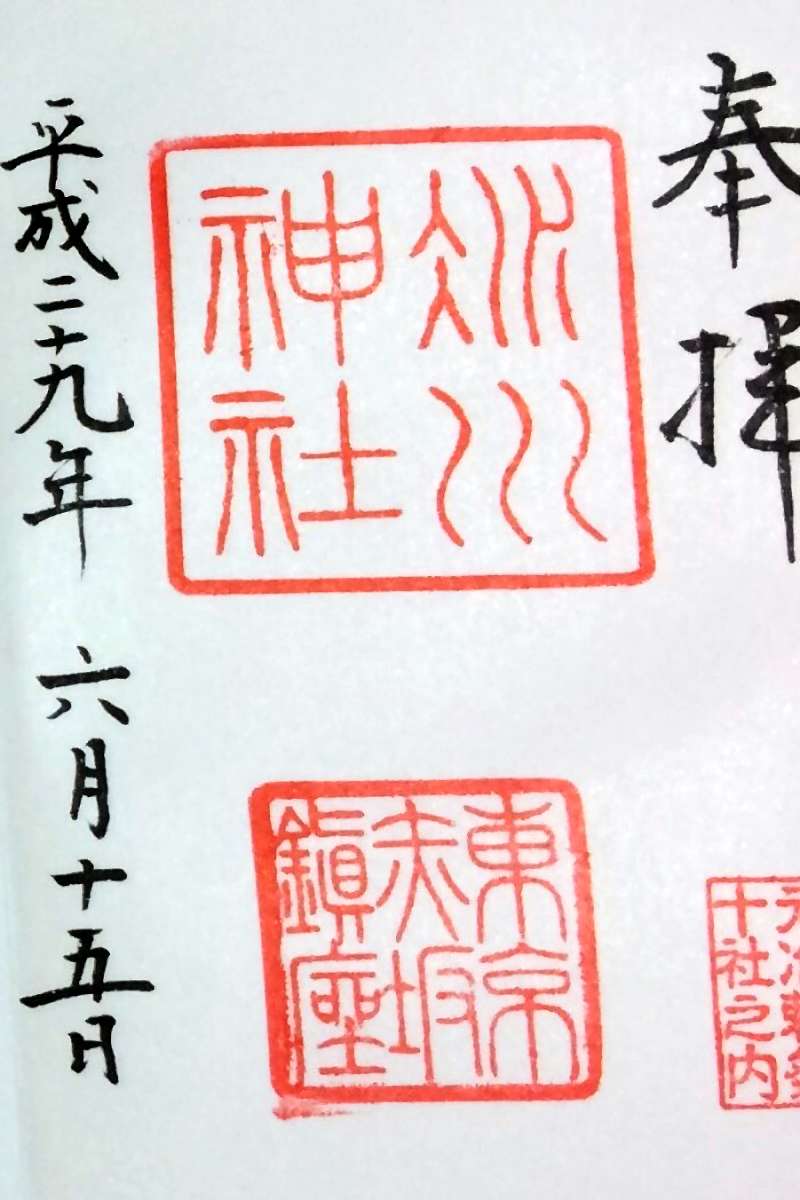 奉拝
氷川
神社
東京
赤坂
鎮座
十社之内
平成二十九年 六月十五日